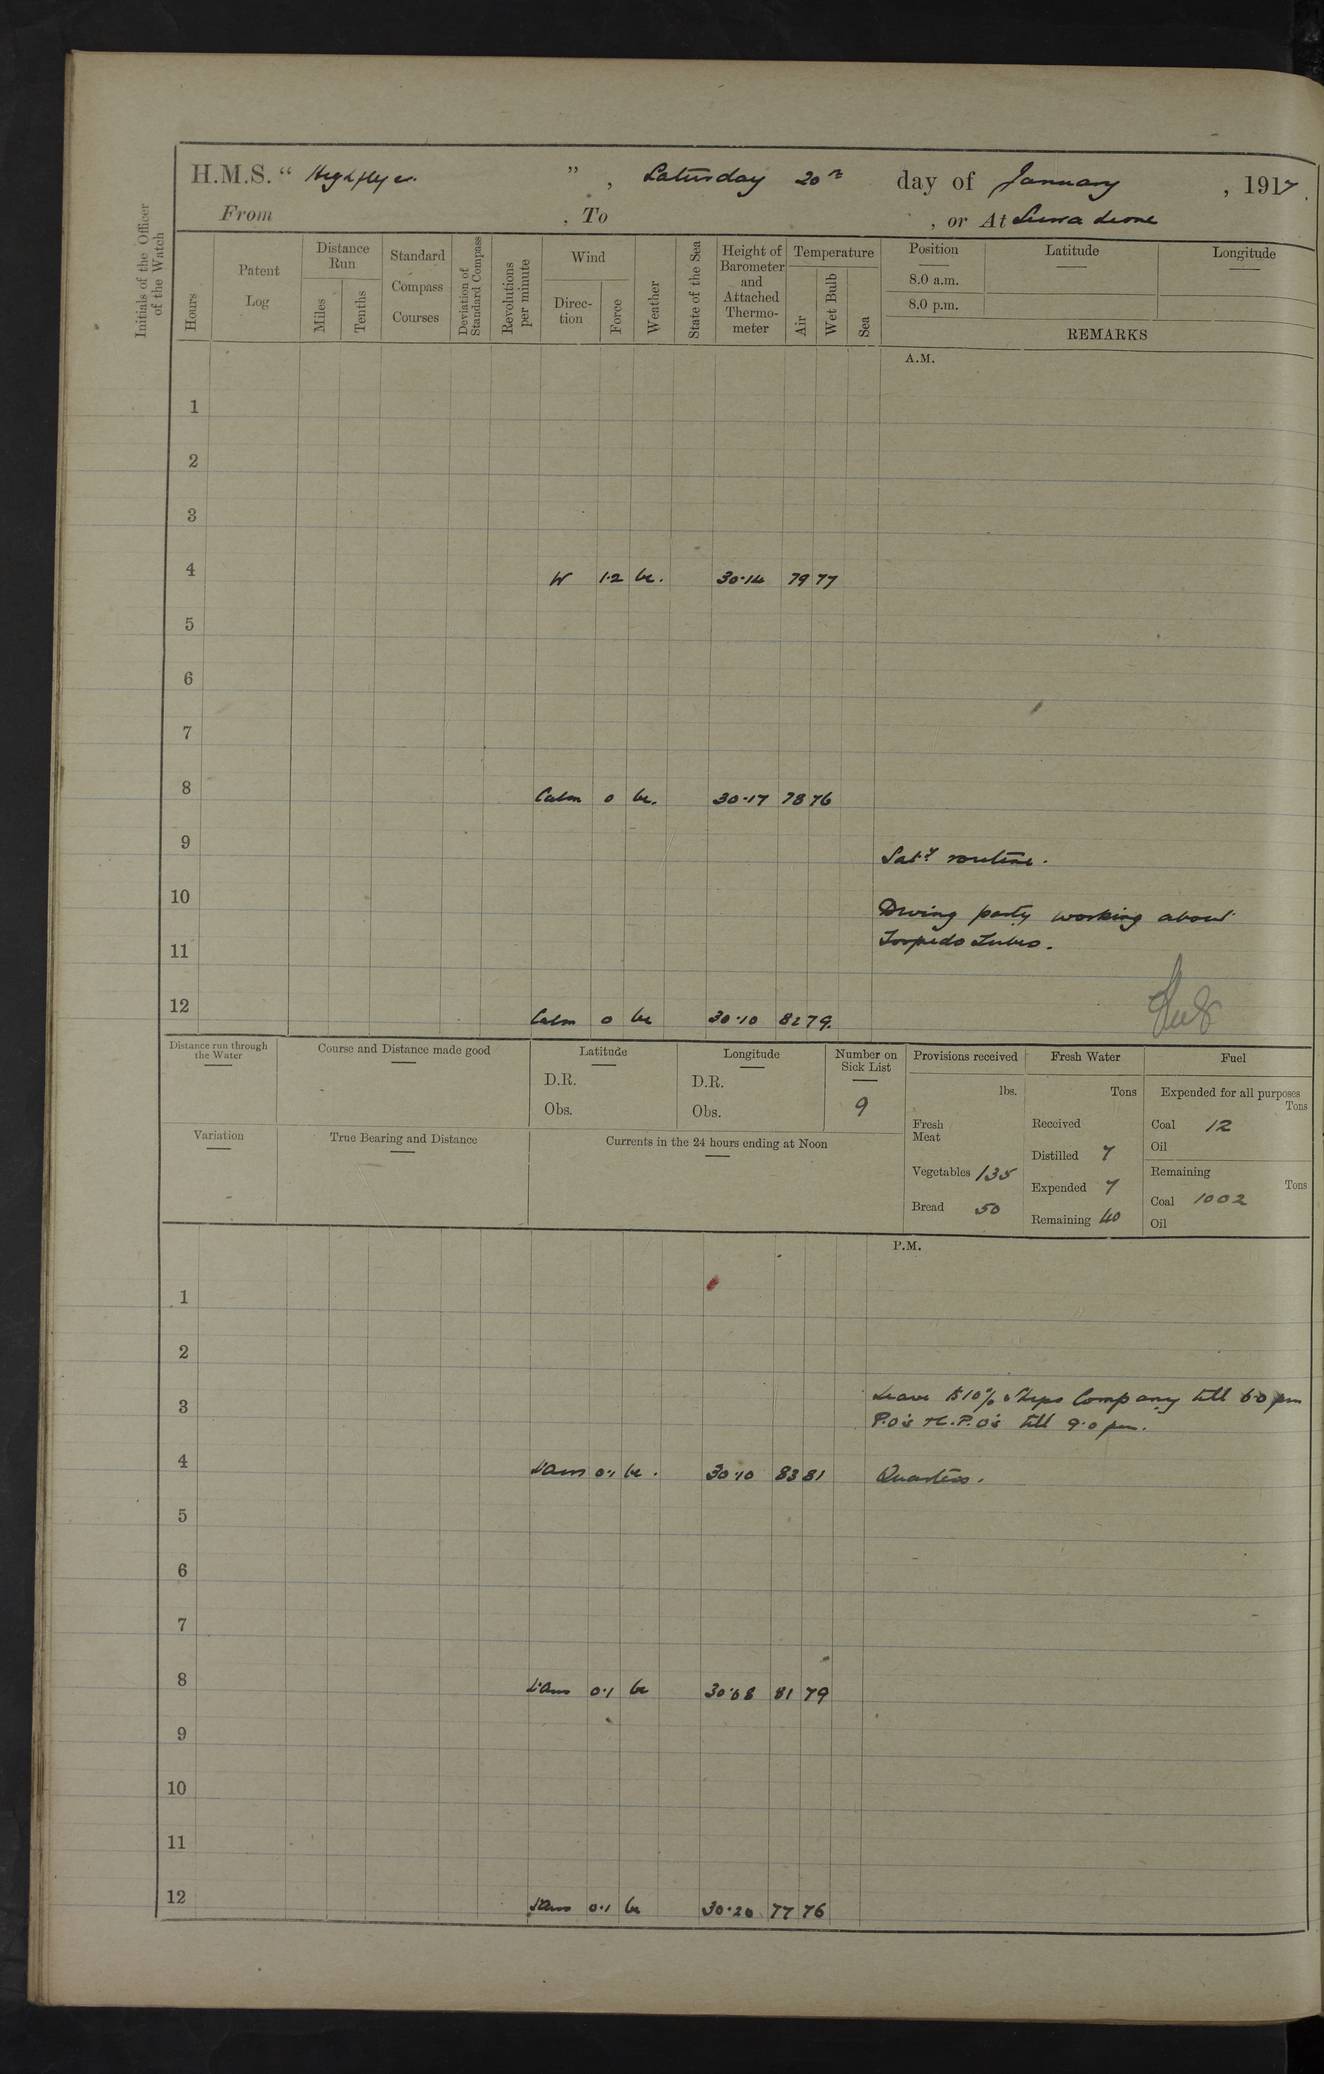 H.M.S. “ Highflyer. ” , Saturday 20th day of January , 1917.
From , To , or At Sierra Leone
Initials of the Officer of the Watch
Hours
Patent Log
Distance Run
Miles
Tenths
Standard Compass Courses
Deviation of Standard Compass
Revolutions per minute
Wind
Direc-tion
Force
Weather
State of the Sea
Height of Barometer and Attached Thermo-meter
Temperature
Air
Wet Bulb
Sea
Position Latitude Longitude
8.0 a.m.
8.0 p.m.
REMARKS
A.M.
1
2
3
4 W 1·2 bc. 30·14 79 77
5
6
7
8 Calm 0 bc. 30·17 78 76
9 Saty routine.
10 Diving party working about
11 Torpedo Tubes.
12 Calm 0 bc 30·10 82 79.
Distance run through the Water
Course and Distance made good
Latitude
D.R.
Obs.
Longitude
D.R.
Obs.
Number on Sick List
9
Provisions received
lbs.
Fresh Meat
Vegetables 135
Bread 50
Fresh Water
Tons
Received
Distilled 7
Expended 7
Remaining 40
Fuel
Expended for all purposes
Tons
Coal 12
Oil
Remaining
Tons
Coal 1002
Oil
Variation
True Bearing and Distance
Currents in the 24 hours ending at Noon
P.M.
1
2
Leave to 10% Ships Company till 6·0 pm
3 P.O's & C.P.O's till 9·0 pm.
4 0·1 bc. 30·10 83 81 Quarters.
5
6
7
8 0·1 bc 30·08 81 79
9
10
11
12 0·1 bc 30·20 77 76